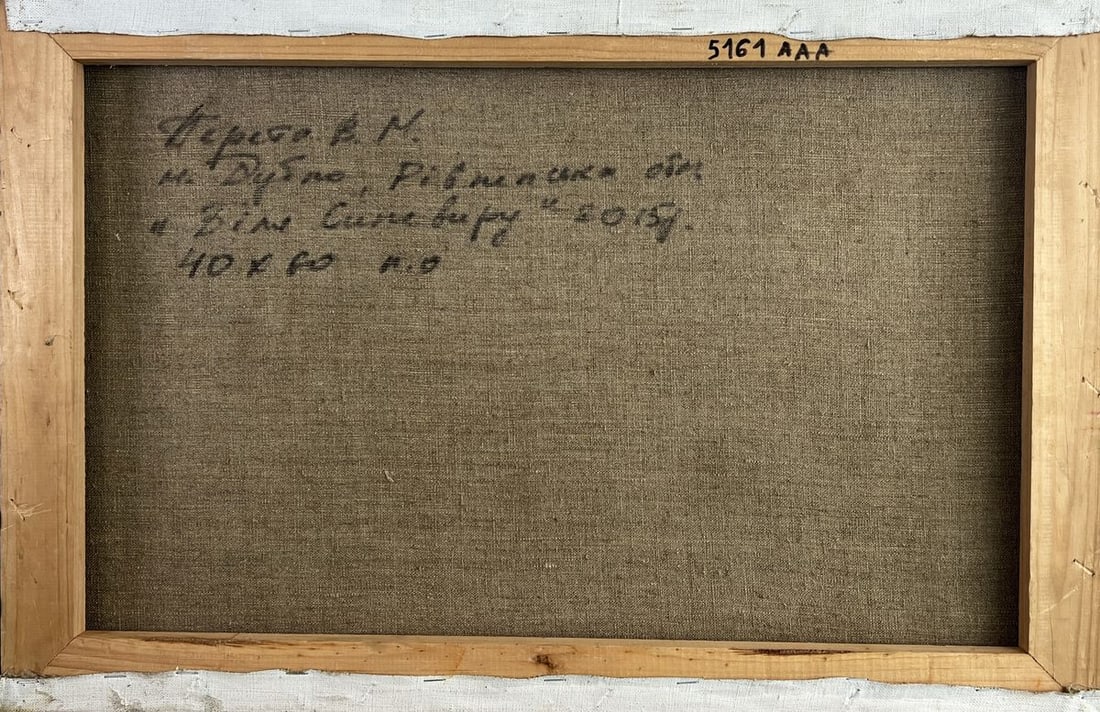 5161 AAA
В. М.
м. Дубно, Рівненська обл.
"Біля Синевиру" 2015р.
40 х 60 п.о